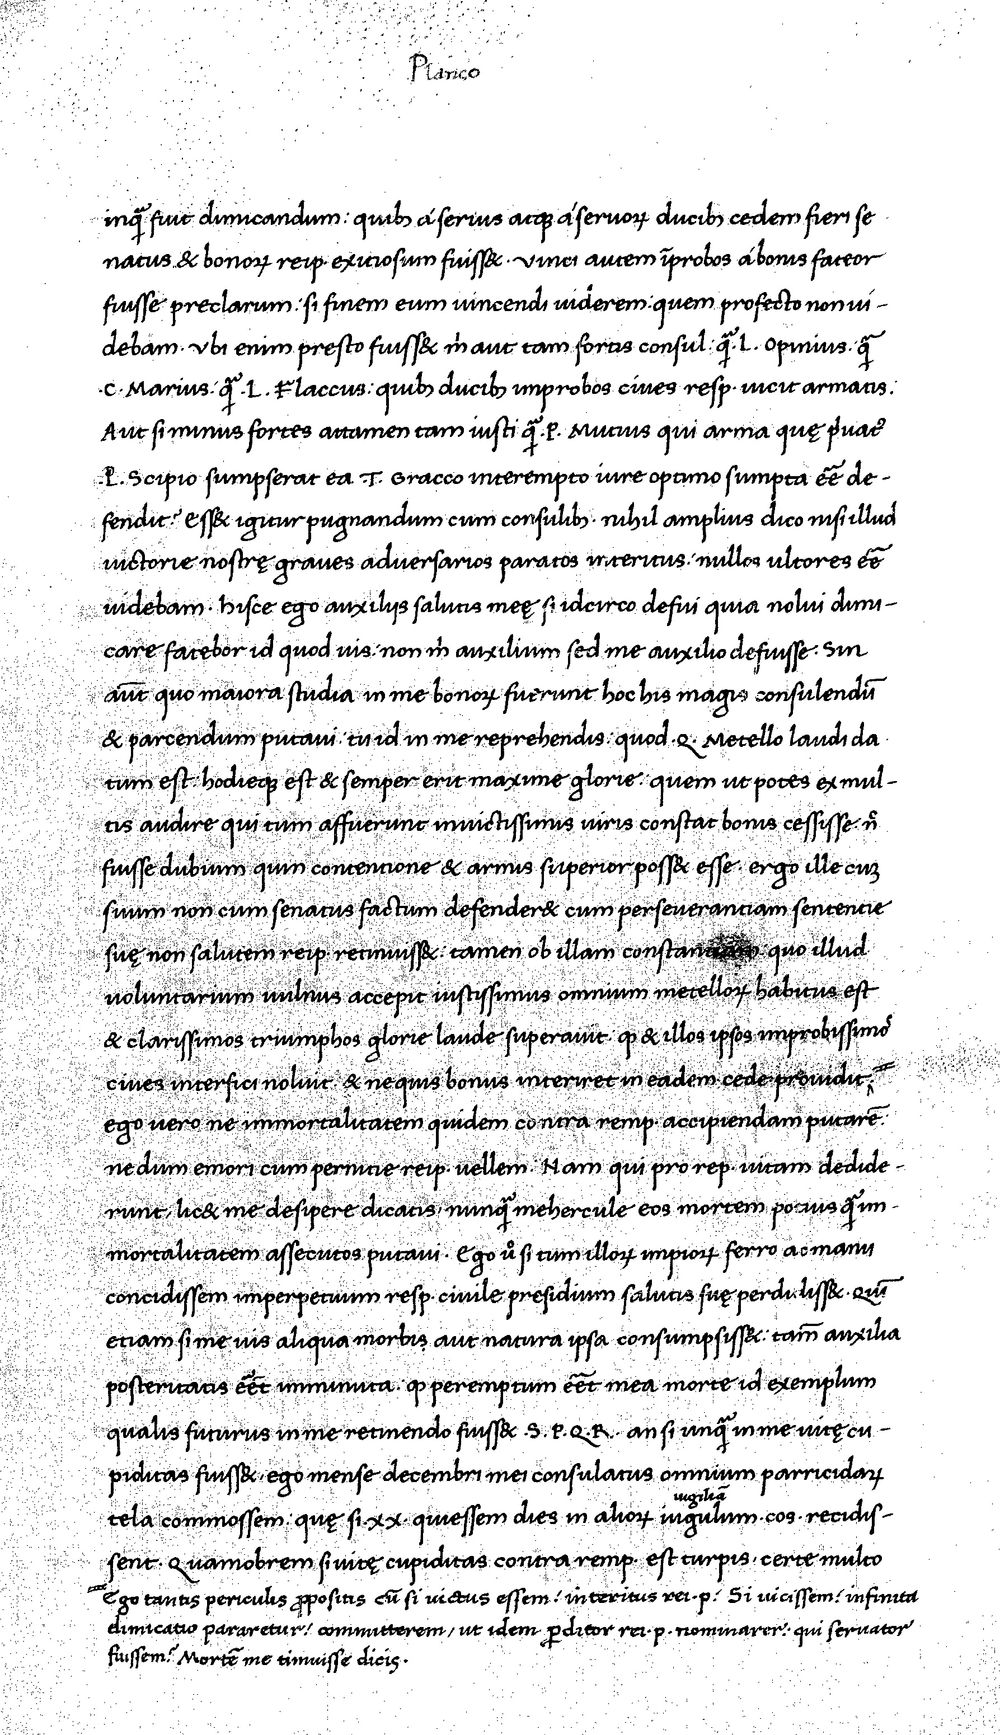 Planco
inqȝ fuit dimicandum: quibȝ á seruis atqȝ á seruorꝝ ducibȝ cedem fieri se
natus & bonorꝝ reip· exitiosum fuiss&· vinci autem īprobos á bonis fateor
fuisse preclarum: si finem eum uincendi uiderem: quem profecto non ui-
debam· vbi enim presto fuiss& m̄ aut tam fortis consul: q̄ꝫ ·L· Opinius: q̄ꝫ
·C· Marius: q̄ꝫ ·L· Flaccus: quibȝ ducibȝ improbos ciues resp· uicit armatis:
Aut si minus fortes attamen tam iusti q̄ꝫ ·P· Mutius qui arma quę p̱uat᷒
·P· Scipio sumpserat ea ·T· Gracco interempto iure optimo sumpta ēē de-
fendit? Ess& igitur pugnandum cum consulibȝ· nihil amplius dico nisi illud
uictorie nostrę graues adversarios paratos interitus: nullos ultores ēē
uidebam· hisce ego auxilijs salutis meę si idcirco defui quia nolui dimi-
care fatebor id quod uis: non m̄ auxilium sed me auxilio defuisse· Sin
aūt quo maiora studia in me bonorꝝ fuerunt hoc his magis consulendū
& parcendum putaui· tu id in me reprehendis: quod ·Q· Metello laudi da
tum est· hodieqȝ est & semper erit maxime glorie: quem ut potes ex mul-
tis audire qui tum affuerunt inuictissimis uiris constat bonis cessisse· n̄
fuisse dubium quin contentione & armis superior poss& esse· ergo ille cuȝ
suum non cum senatus factum defender& cum perseuerantiam sententie
suę non salutem reip· retinuiss&· tamen ob illam quo illud
uoluntarium uulnus accepit iustissimus omnium metellorꝝ habitus est
& clarissimos triumphos glorie laude superauit· ꝙ & illos ipsos improbissimo᷒
ciues interfici noluit· & ne quis bonus interiret in eadem cede prouidit·
ego uero ne immortalitatem quidem contra remp· accipiendam putarē·
nedum emori cum pernitie reip· uellem· Nam qui pro rep· uitam dedide-
runt, lic& me desipere dicatis, nunq̄ꝫ mehercule eos mortem potius q̄ꝫ im-
mortalitatem assecutos putaui· Ego u͛o si tum illorꝝ impiorꝝ ferro ac manu
concidissem imperpetuum resp· ciuile presidium salutis suę perdidiss&· Quī
etiam si me uis aliqua morbis aut natura ipsa consumpsiss&: tam̄ auxilia
posteritatis ēēt imminuta· ꝙ peremptum ēēt mea morte id exemplum
qualis futurus in me retinendo fuiss& ·S· P· Q· R· an si unq̄ꝫ in me uitę cu-
piditas fuiss& ego mense decembri mei consulatus omnium parricidarꝝ
tela commossem· quę si ·xx· quiessem dies in aliorꝝ iugulum·cos· recidis-
uigiliā
sent· Quamobrem si uitę cupiditas contra remp· est turpis· certe multo
Ego tantis periculis ꝓpositis cū si uictus essem: interitus rei·p· Si uicissem: infinita
dimicatio pararetur: committerem, ut idem ꝑditor rei·p· nominarer: qui seruator
fuissem? Mortē me timuisse dicis·